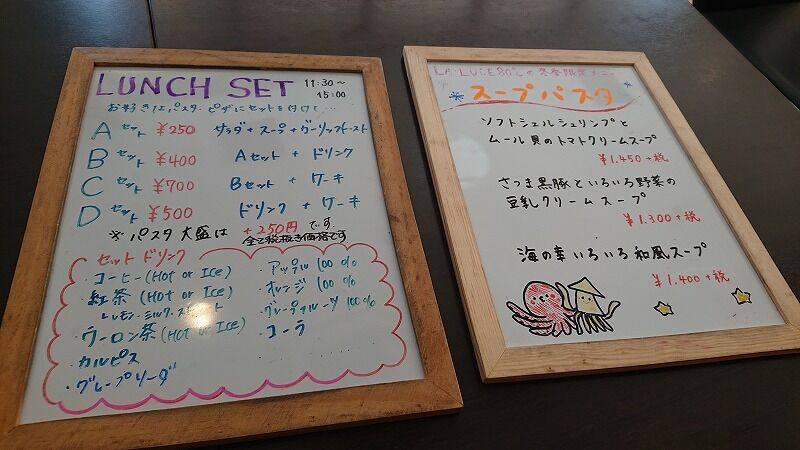 LUNCH SET 11:30〜15:00
お好きなパスタ・ピザにセットを付けて…
Aセット ¥250 サラダ + スープ + ガーリックトースト
Bセット ¥400 Aセット + ドリンク
Cセット ¥700 Bセット + ケーキ
Dセット ¥500 ドリンク + ケーキ
※ パスタ大盛は +250円 です
全て税抜き価格です
セットドリンク
・コーヒー (Hot or Ice)
・紅茶 (Hot or Ice)
レモン・ミルク・ストレート
・ウーロン茶 (Hot or Ice)
・カルピス
・グレープソーダ
・アップル 100%
・オレンジ 100%
・グレープフルーツ 100%
・コーラ
LA・LUiE80℃の冬季限定メニュー
スープパスタ
ソフトシェルシュリンプと
ムール貝のトマトクリームスープ
¥1.450+税
さつま黒豚といろいろ野菜の
豆乳クリームスープ
¥1.300+税
海の幸いろいろ和風スープ
¥1.400+税